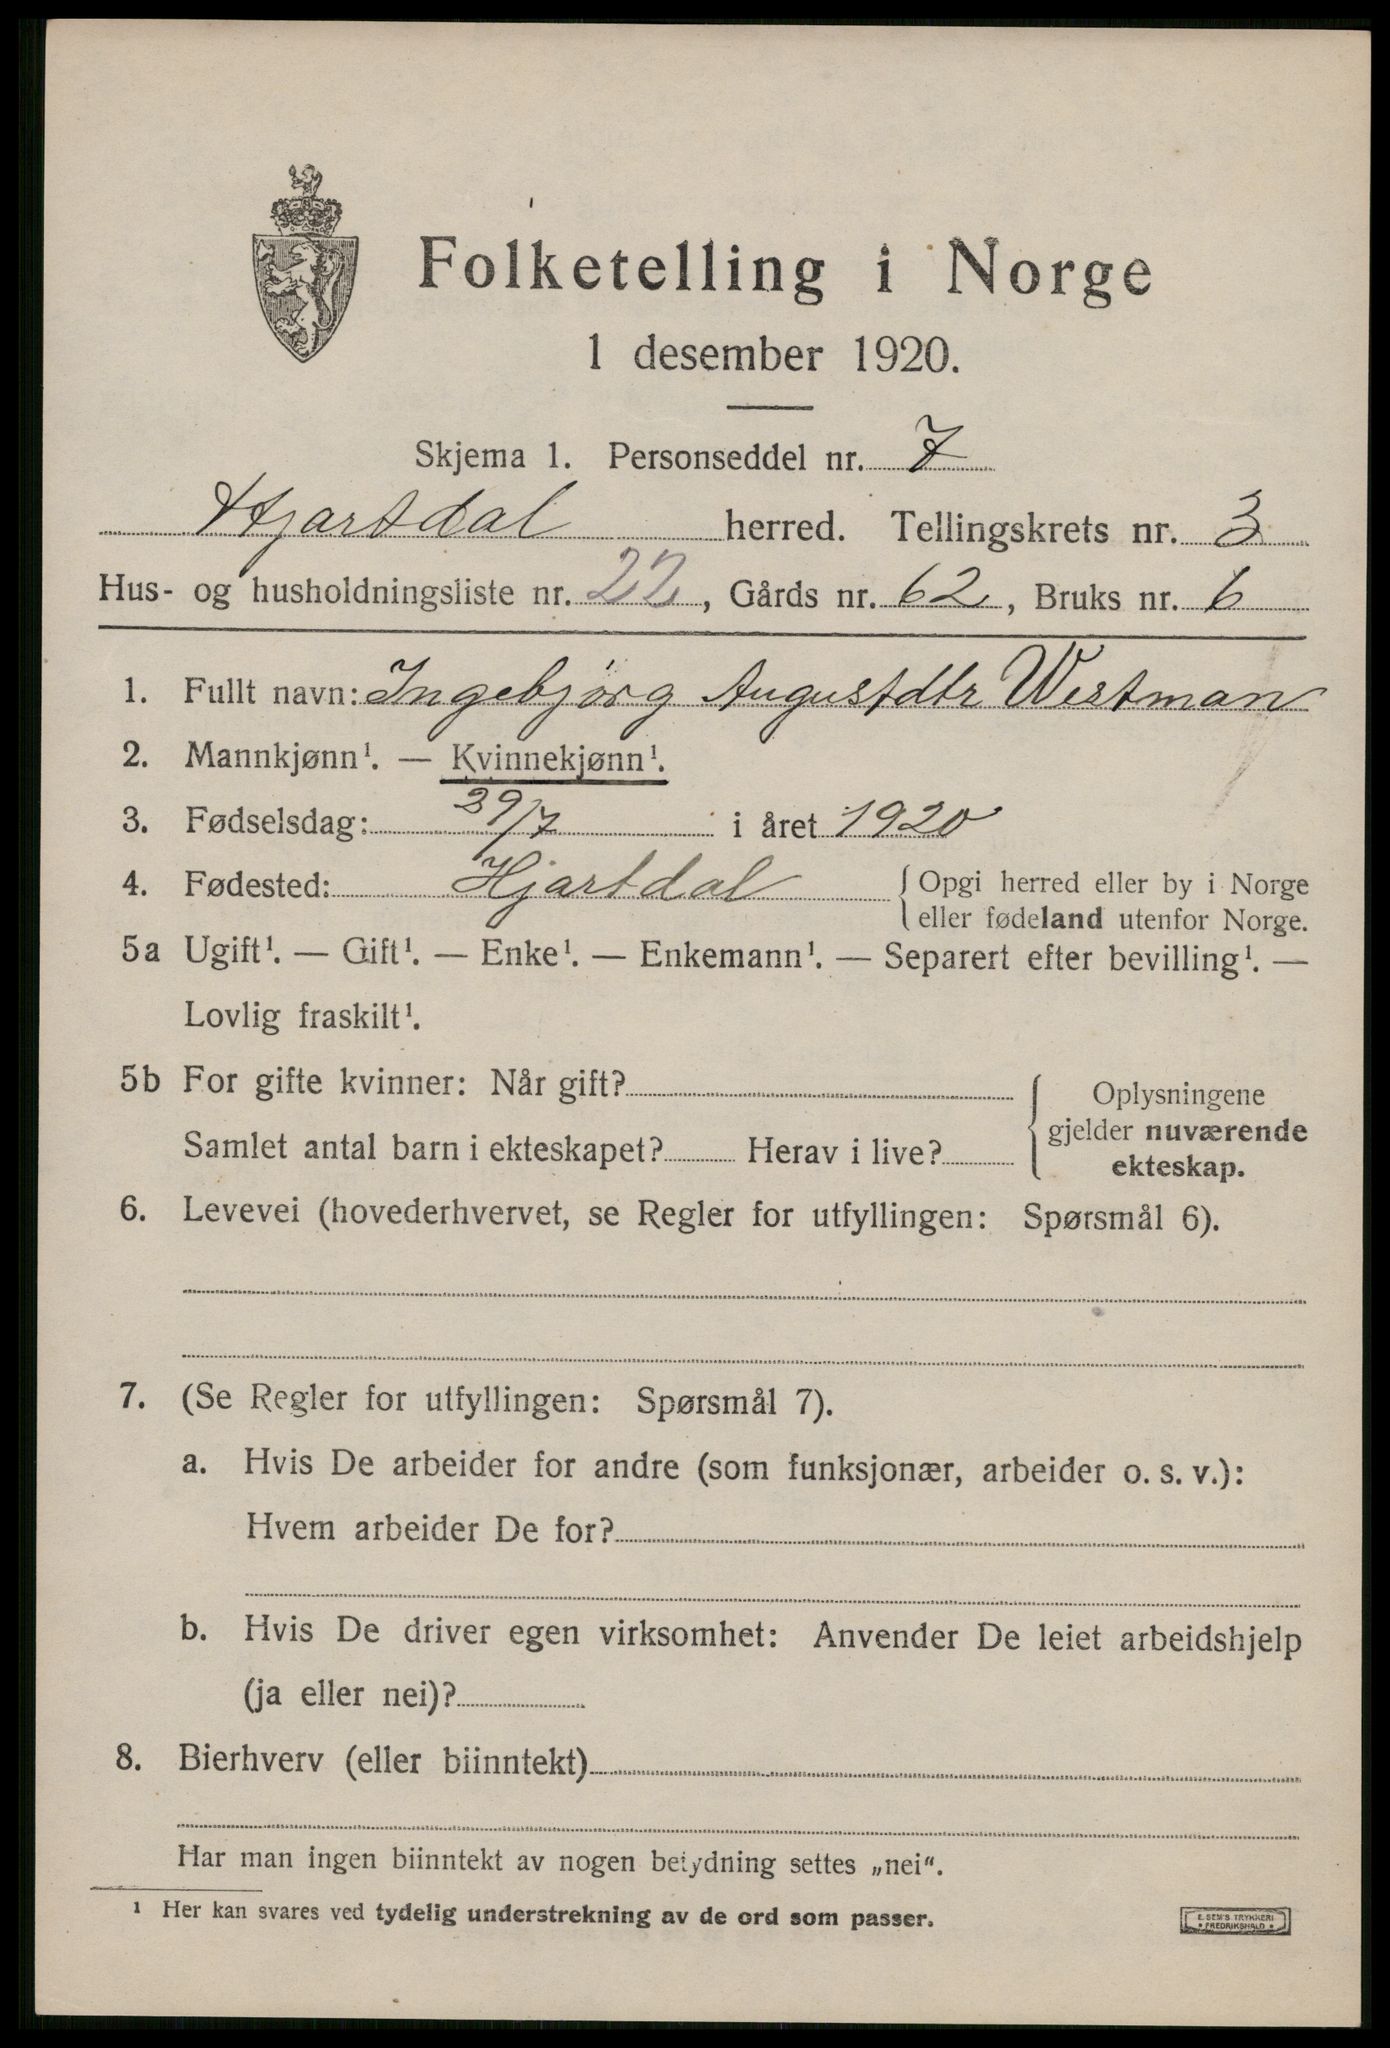 Folketelling i Norge
1 desember 1920.
Skjema 1. Personseddel nr. 7
Hjartdal herred. Tellingskrets nr. 3
Hus- og husholdningsliste nr. 22, Gårds nr. 62, Bruks nr. 6
1. Fullt navn: Ingebjørg Augustdtr Westman
2. Mannkjønn¹. — Kvinnekjønn¹.
3. Fødselsdag: 29/7 i året 1920
4. Fødested: Hjartdal { Opgi herred eller by i Norge
eller fødeland utenfor Norge.
5a Ugift¹. — Gift¹. — Enke¹. — Enkemann¹. — Separert efter bevilling¹. —
Lovlig fraskilt¹.
5b For gifte kvinner: Når gift?
Samlet antal barn i ekteskapet? Herav i live?
Oplysningene
gjelder nuværende
ekteskap.
6. Levevei (hovederhvervet, se Regler for utfyllingen: Spørsmål 6).
7. (Se Regler for utfyllingen: Spørsmål 7).
a. Hvis De arbeider for andre (som funksjonær, arbeider o. s. v.):
Hvem arbeider De for?
b. Hvis De driver egen virksomhet: Anvender De leiet arbeidshjelp
(ja eller nei)?
8. Bierhverv (eller biinntekt)
Har man ingen biinntekt av nogen betydning settes „nei“.
¹ Her kan svares ved tydelig understrekning av de ord som passer.
E. SEM'S TRYKKERI
• FREDRIKSHALD •